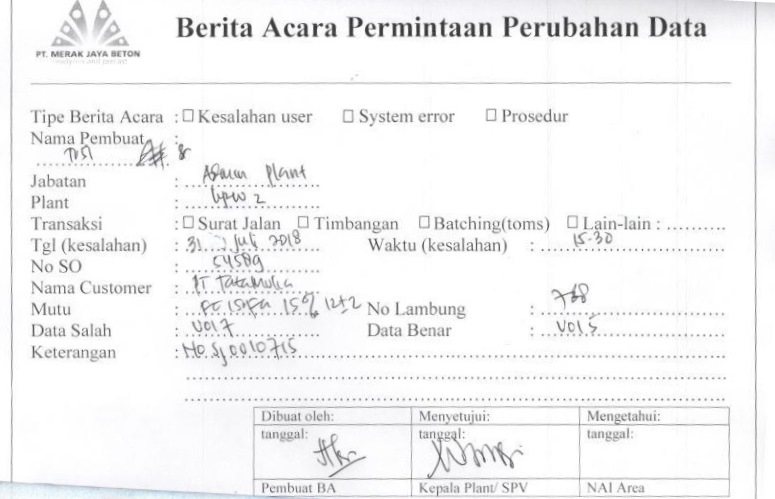 Berita Acara Permintaan Perubahan Data
PT. MERAK JAYA BETON
Tipe Berita Acara : □ Kesalahan user □ System error □ Prosedur
Nama Pembuat :
Jabatan : Admin Plant
Plant :
Transaksi : □ Surat Jalan □ Timbangan □ Batching(toms) □ Lain-lain : ..........
Tgl (kesalahan) : 31 Juli 2018 Waktu (kesalahan) : 15.30
No SO : 54589
Nama Customer : PT Tatamulia
Mutu : 15% 12±2 No Lambung : 768
Data Salah : Vol 7 Data Benar : Vol 5
Keterangan : No SJ 0010715
Dibuat oleh: Menyetujui: Mengetahui:
tanggal: tanggal: tanggal:
Pembuat BA Kepala Plant/ SPV NAI Area